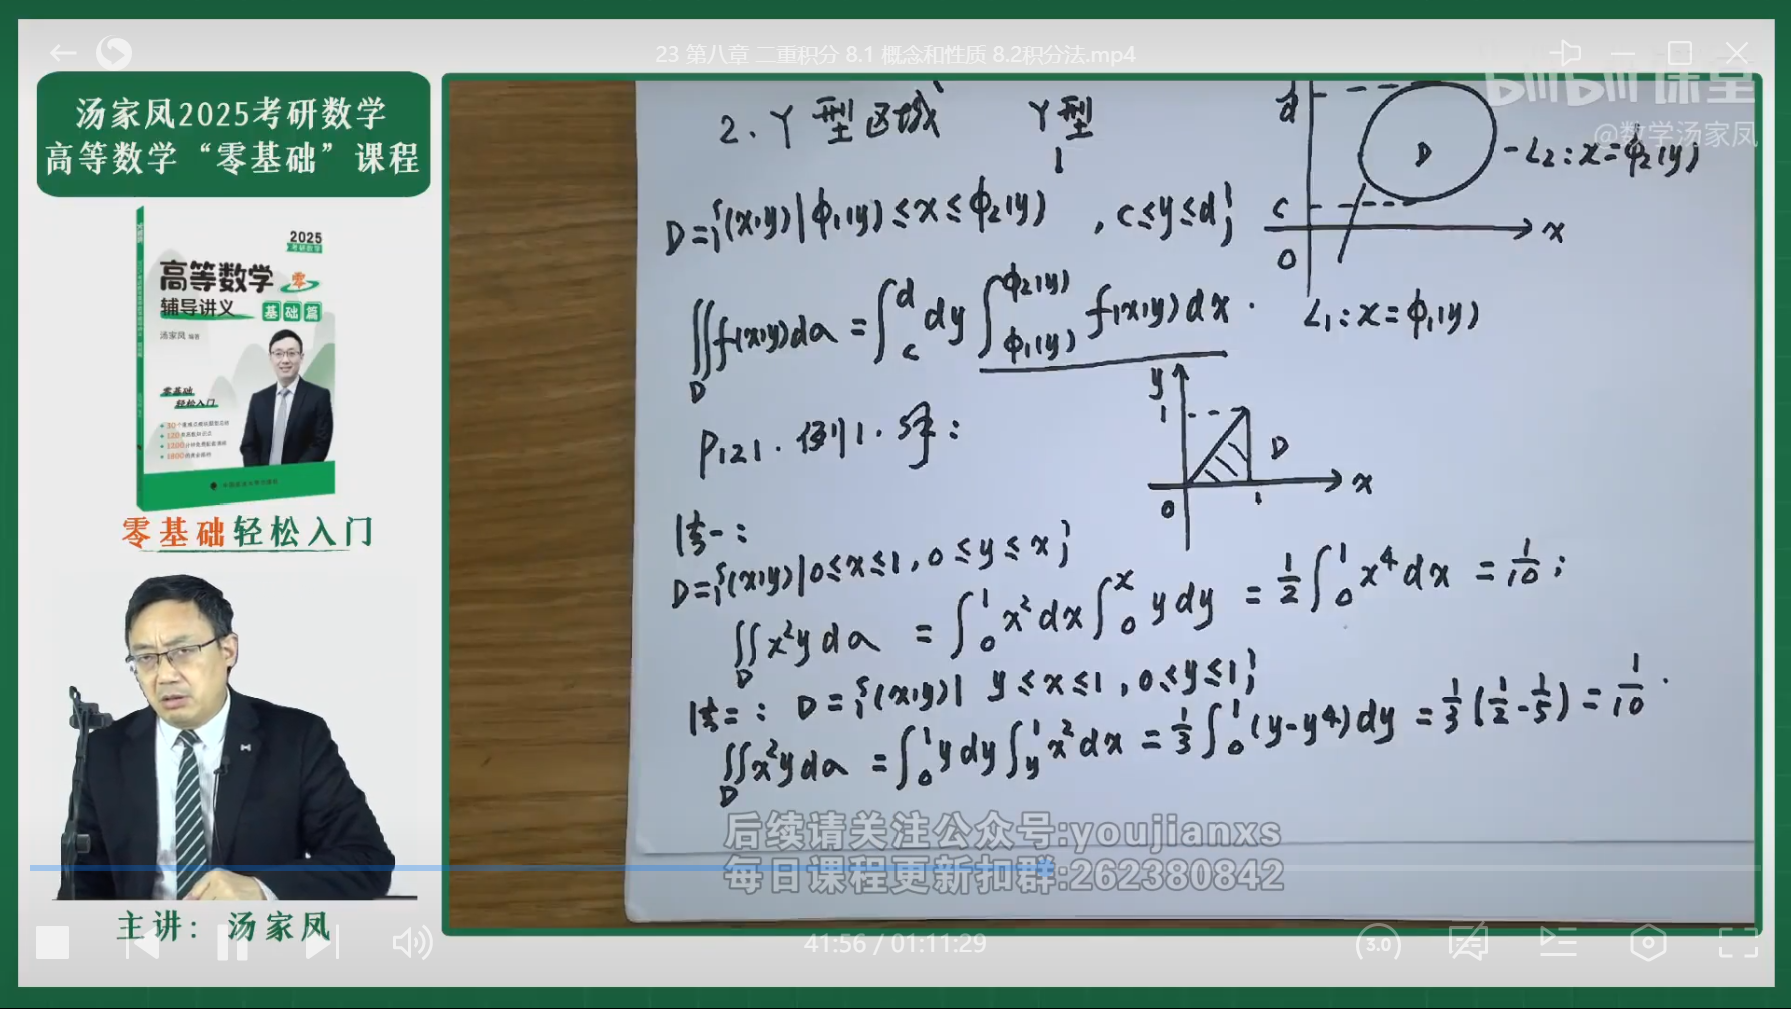 23 第八章 二重积分 8.1 概念和性质 8.2积分法.mp4
汤家凤2025考研数学
高等数学“零基础”课程
2025
高等数学 零
辅导讲义 基础篇
汤家凤 编著
零基础
轻松入门
零基础轻松入门
主讲：汤家凤
bilibili 课堂
@数学汤家凤
2. Y型区域 Y型
d
D
-L₂: x=φ₂(y)
c
x
0
L₁: x=φ₁(y)
D={(x,y)|φ₁(y)≤x≤φ₂(y), c≤y≤d}
∬_D f(x,y)dσ = ∫_c^d dy ∫_{φ₁(y)}^{φ₂(y)} f(x,y)dx.
P121. 例1. 解:
y
1
D
x
0
1
法一:
D={(x,y)|0≤x≤1, 0≤y≤x}
∬_D x²y dσ = ∫_0^1 x²dx ∫_0^x y dy = 1/2 ∫_0^1 x⁴dx = 1/10;
法二: D={(x,y)| y≤x≤1, 0≤y≤1}
∬_D x²y dσ = ∫_0^1 y dy ∫_y^1 x²dx = 1/3 ∫_0^1 (y-y⁴)dy = 1/3(1/2-1/5) = 1/10.
后续请关注公众号:youjianxs
每日课程更新扣群:262380842
41:56 / 01:11:29
3.0